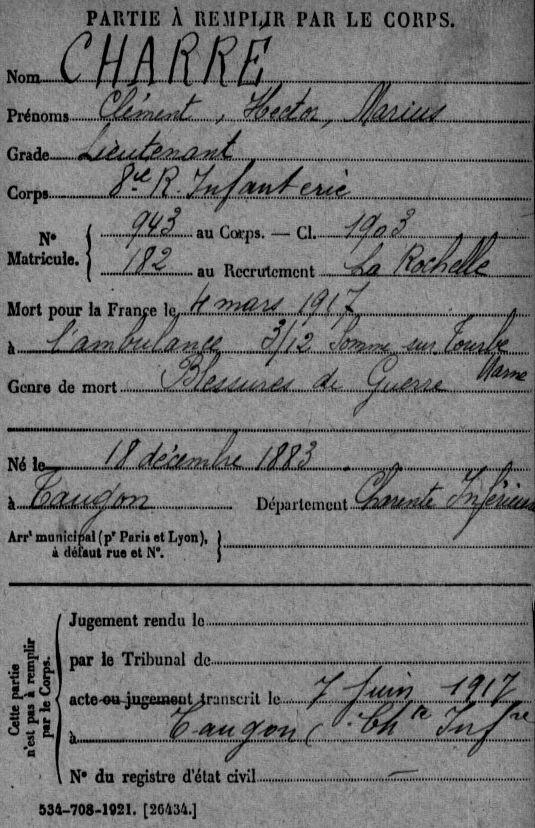 PARTIE À REMPLIR PAR LE CORPS.
Nom CHARRÉ
Prénoms Clément, Hector, Marius
Grade Lieutenant
Corps 8e R. Infanterie
N° Matricule. { 943 au Corps. — Cl. 1903
182 au Recrutement La Rochelle
Mort pour la France le 4 mars 1917
à l'ambulance 3/12 Somme sur Tourbe
Marne
Genre de mort Blessures de Guerre
Né le 18 décembre 1883
à Taugon Département Charente Inférieure
Arrt municipal (pr Paris et Lyon), à défaut rue et N°. }
Cette partie n'est pas à remplir par le Corps.
Jugement rendu le
par le Tribunal de
acte ou jugement transcrit le 7 Juin 1917
à Taugon (Chte Infre
N° du registre d'état civil —
534-708-1921. [26434.]